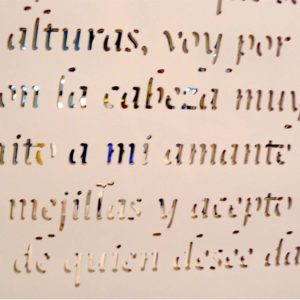 alturas, voy por
la cabeza muy
a mi amante
mejillas y acepto
de quien desee